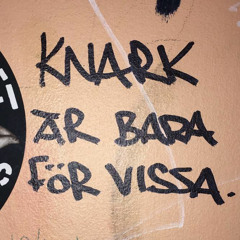 KNARK
ÄR BARA
FÖR VISSA.